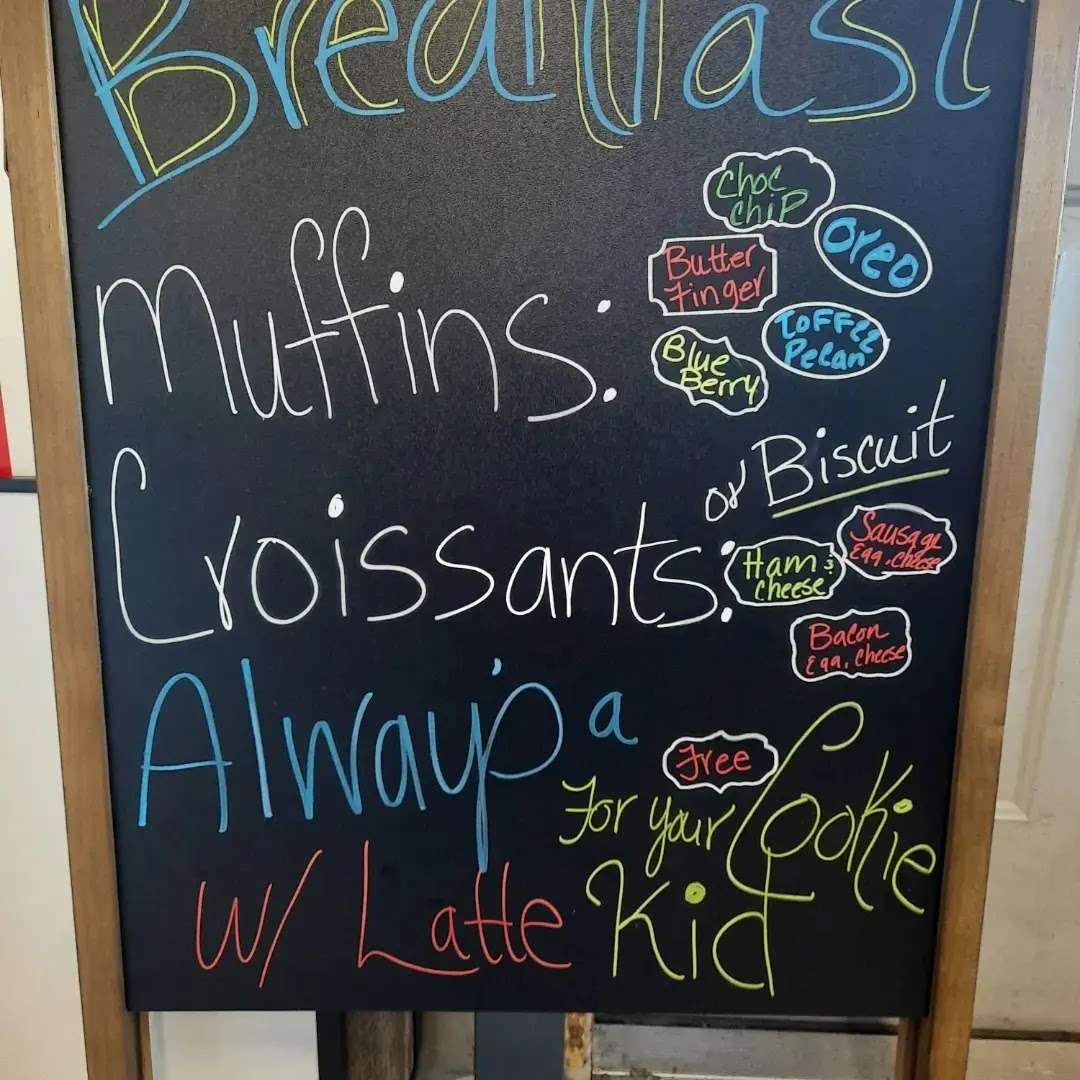 Breakfast
Muffins:
Choc
Chip
Oreo
Butter
Finger
Toffee
Pecan
Blue
Berry
or Biscuit
Croissants:
Ham &
Cheese
Sausage
Egg. Cheese
Bacon
Egg. Cheese
Always a
Free
Cookie
For your
Kid
w/ Latte